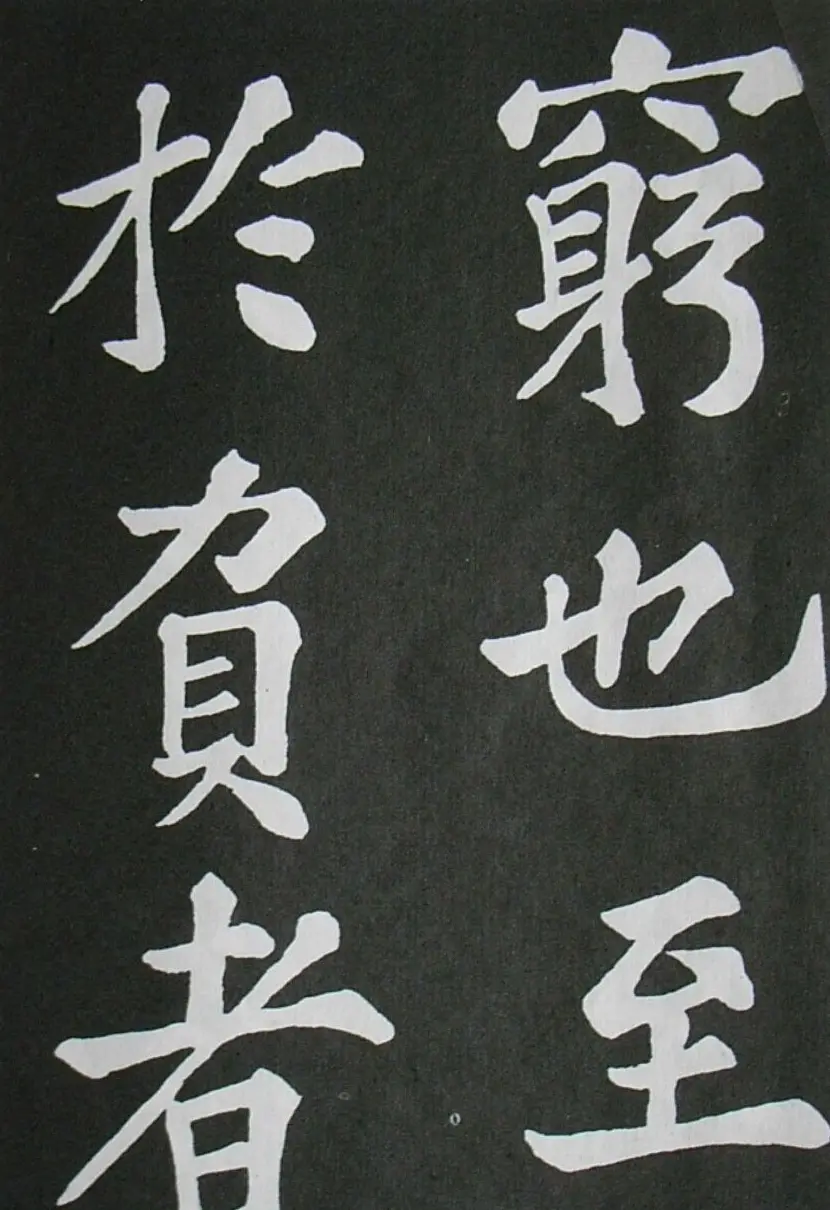 窮也至
於負者